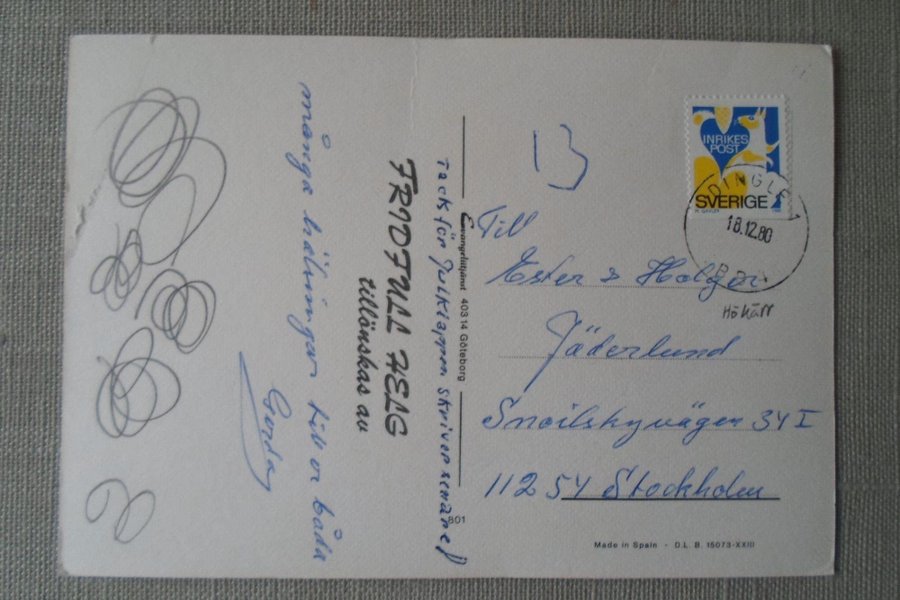 många hälsningar till er båda
Gerda
FRIDFULL HELG
tillönskas av
Tack för Julklappen skriver senare!
Evangelietjänst 40314 Göteborg
801
13
INRIKES
POST
SVERIGE
DINGLE 1
18.12.80
Till
Ester & Holger
Hökärr
Jäderlund
Snoilskyvägen 34 I
112 54 Stockholm
Made in Spain - D.L. B. 15073-XXIII